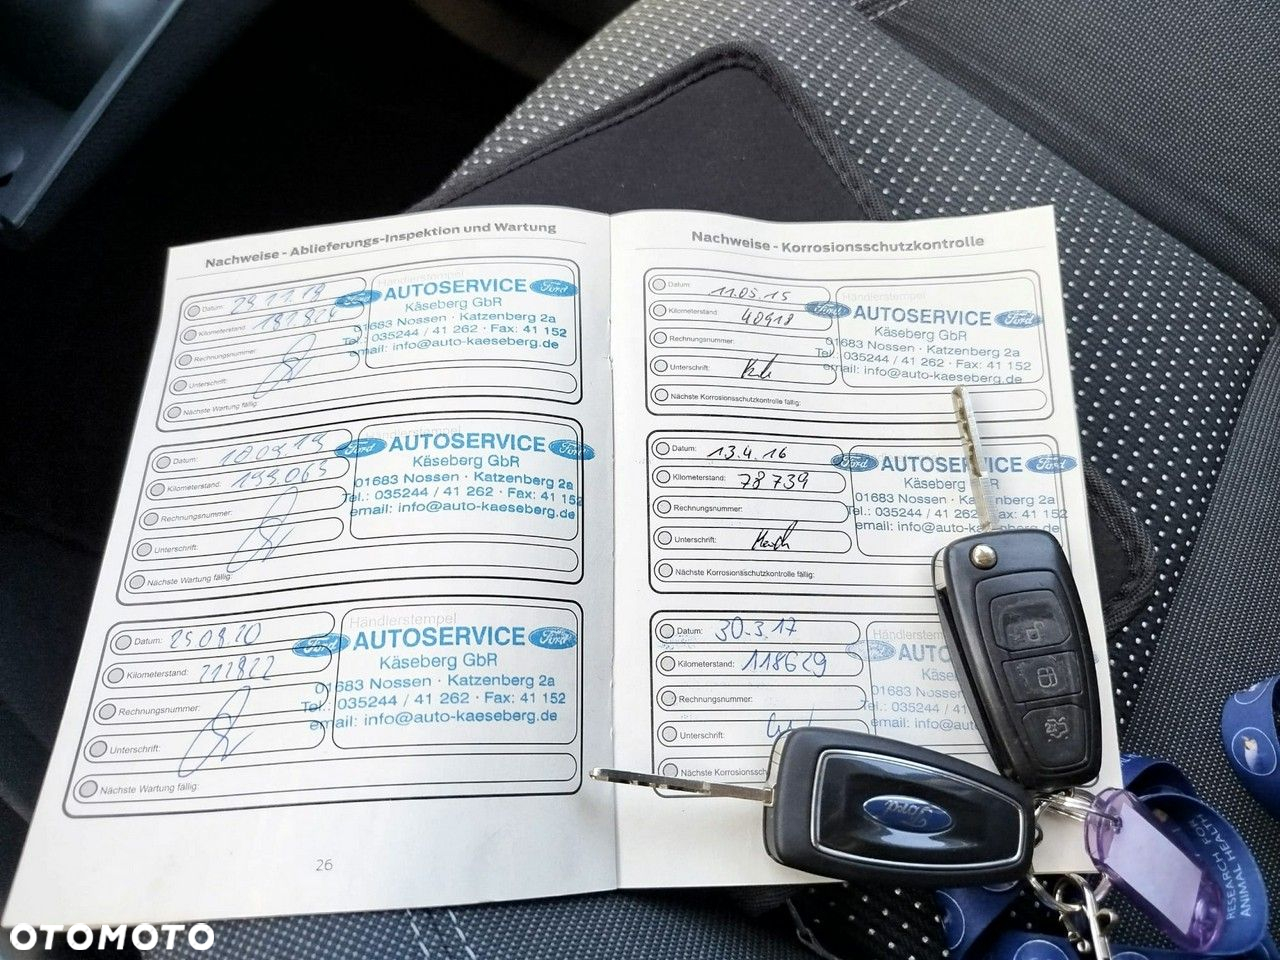 Nachweise - Ablieferungs-Inspektion und Wartung
Händlerstempel
Datum:
Kilometerstand:
Rechnungsnummer:
Unterschrift:
Nächste Wartung fällig:
Ford AUTOSERVICE Ford
Käseberg GbR
01683 Nossen · Katzenberg 2a
Tel.: 035244 / 41 262 · Fax: 41 152
email: info@auto-kaeseberg.de
Datum:
Kilometerstand: 199.065
Rechnungsnummer:
Unterschrift:
Nächste Wartung fällig:
Ford AUTOSERVICE Ford
Käseberg GbR
01683 Nossen · Katzenberg 2a
Tel.: 035244 / 41 262 · Fax: 41 152
email: info@auto-kaeseberg.de
Händlerstempel
Datum: 25.08.20
Kilometerstand: 212822
Rechnungsnummer:
Unterschrift:
Nächste Wartung fällig:
Ford AUTOSERVICE Ford
Käseberg GbR
01683 Nossen · Katzenberg 2a
Tel.: 035244 / 41 262 · Fax: 41 152
email: info@auto-kaeseberg.de
26
Nachweise - Korrosionsschutzkontrolle
Händlerstempel
Datum: 11.05.15
Kilometerstand: 40918
Rechnungsnummer:
Unterschrift:
Nächste Korrosionsschutzkontrolle fällig:
Ford AUTOSERVICE Ford
Käseberg GbR
01683 Nossen · Katzenberg 2a
Tel.: 035244 / 41 262 · Fax: 41 152
email: info@auto-kaeseberg.de
Datum: 13.4.16
Kilometerstand: 78739
Rechnungsnummer:
Unterschrift:
Nächste Korrosionsschutzkontrolle fällig:
Ford AUTOSERVICE Ford
01683 Nossen
email: info@auto-kaeseberg.de
Händlerstempel
Datum: 30.3.17
Kilometerstand: 118629
Rechnungsnummer:
Unterschrift:
Nächste Korrosionssch
AUT
Käse
01683 Nossen
035244 / 41
email: info@au
Ford
RESEARCH FOR
ANIMAL HEAL
OTOMOTO